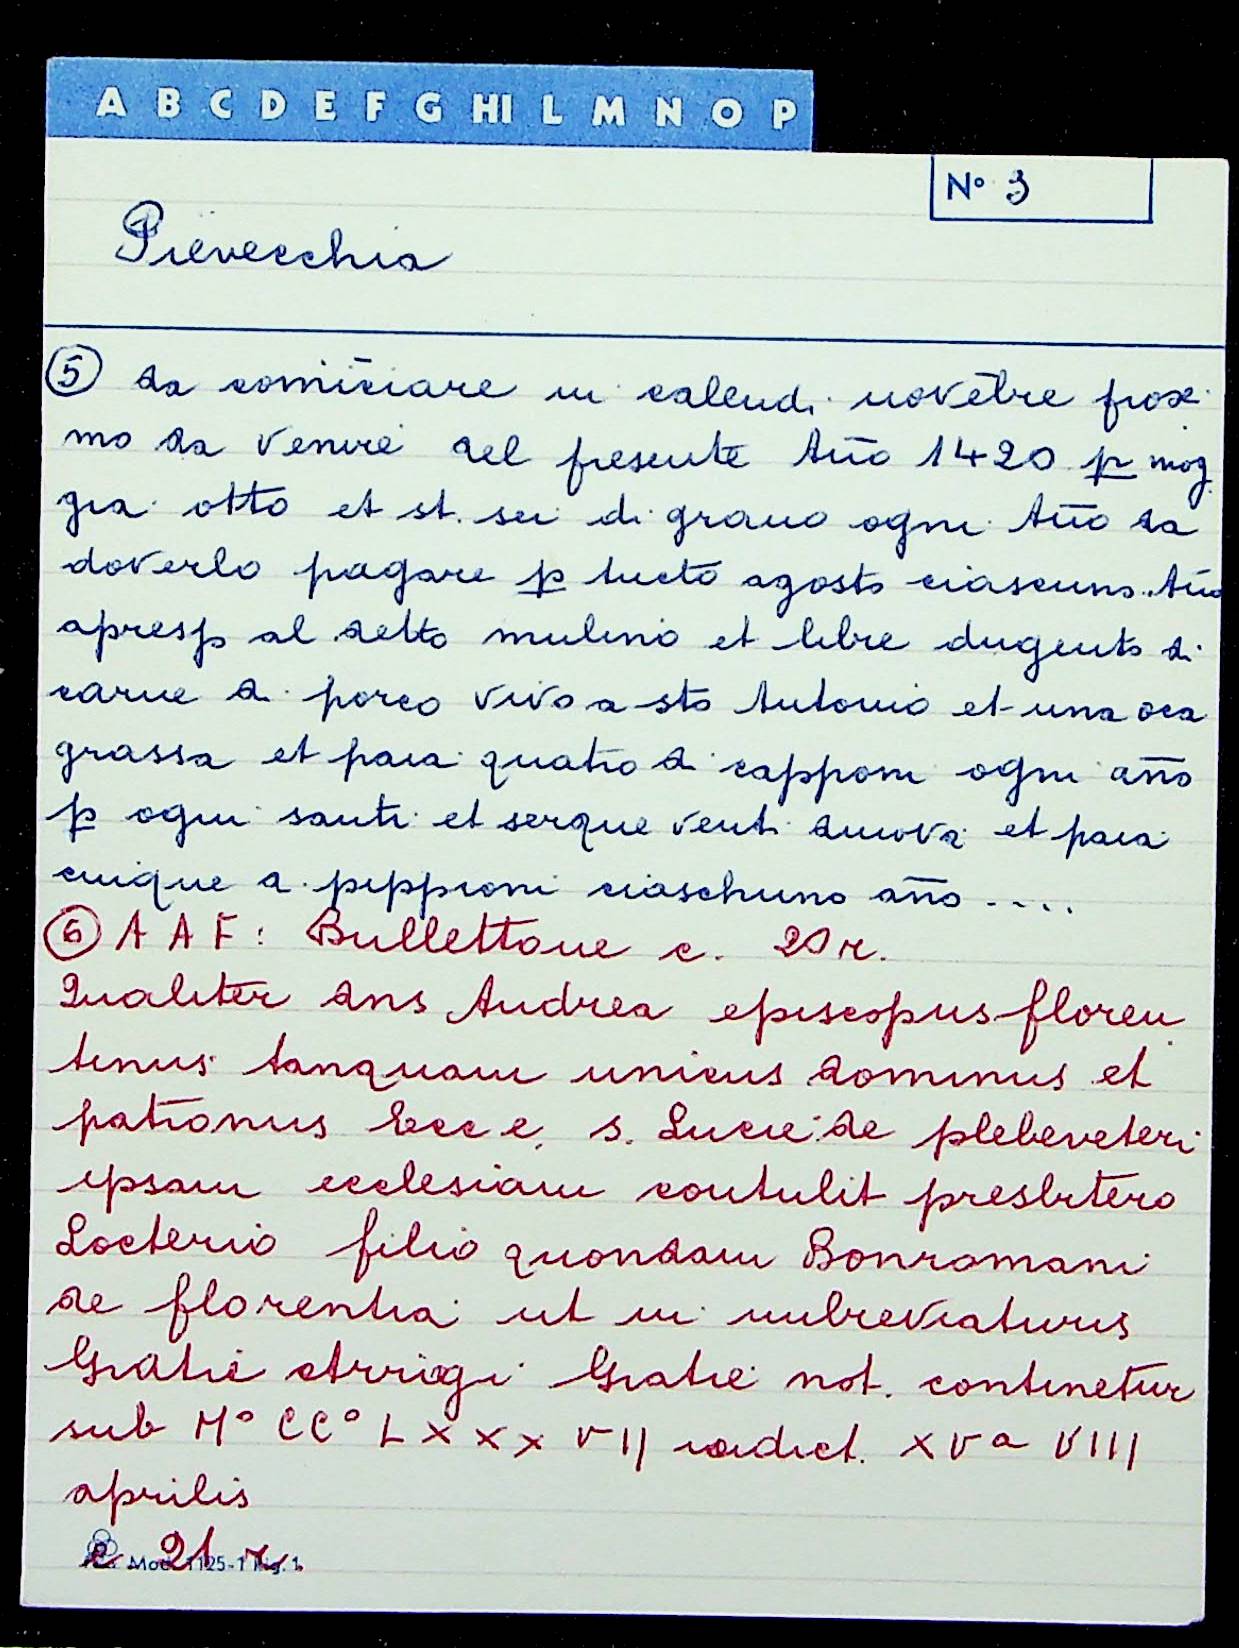 A B C D E F G HI L M N O P
N° 3
Pievecchia
⑤ da comīciare in calendi novēbre proxi
mo da venire del presente Año 1420 p mog
gia otto et st. sei di grano ogni Año da
doverlo pagare p tucto agosto ciascuno Año
apresso al detto mulino et libre dugento di
carne di porco vivo a sto Antonio et una oca
grassa et paia quatro di capponi ogni año
p ogni santi et serque venti duova et paia
cuique di pippioni ciaschuno año ....
⑥ A A F: Bullettone c. 20 r.
Qualiter dns Andrea episcopus floren
tinus tanquam unicus dominus et
patronus Ecc e. s. Lucie de plebeveteri
ipsam ecclesiam contulit presbitero
Locterio filio quondam Bonromani
de florentia ut in imbreviaturis
Gratie Arrigi Gratie not. continetur
sub M° CC° L X X X V II indict. X V a V I I I
aprilis
c. 21 r.
Mod. 1125-1 Rig. 1